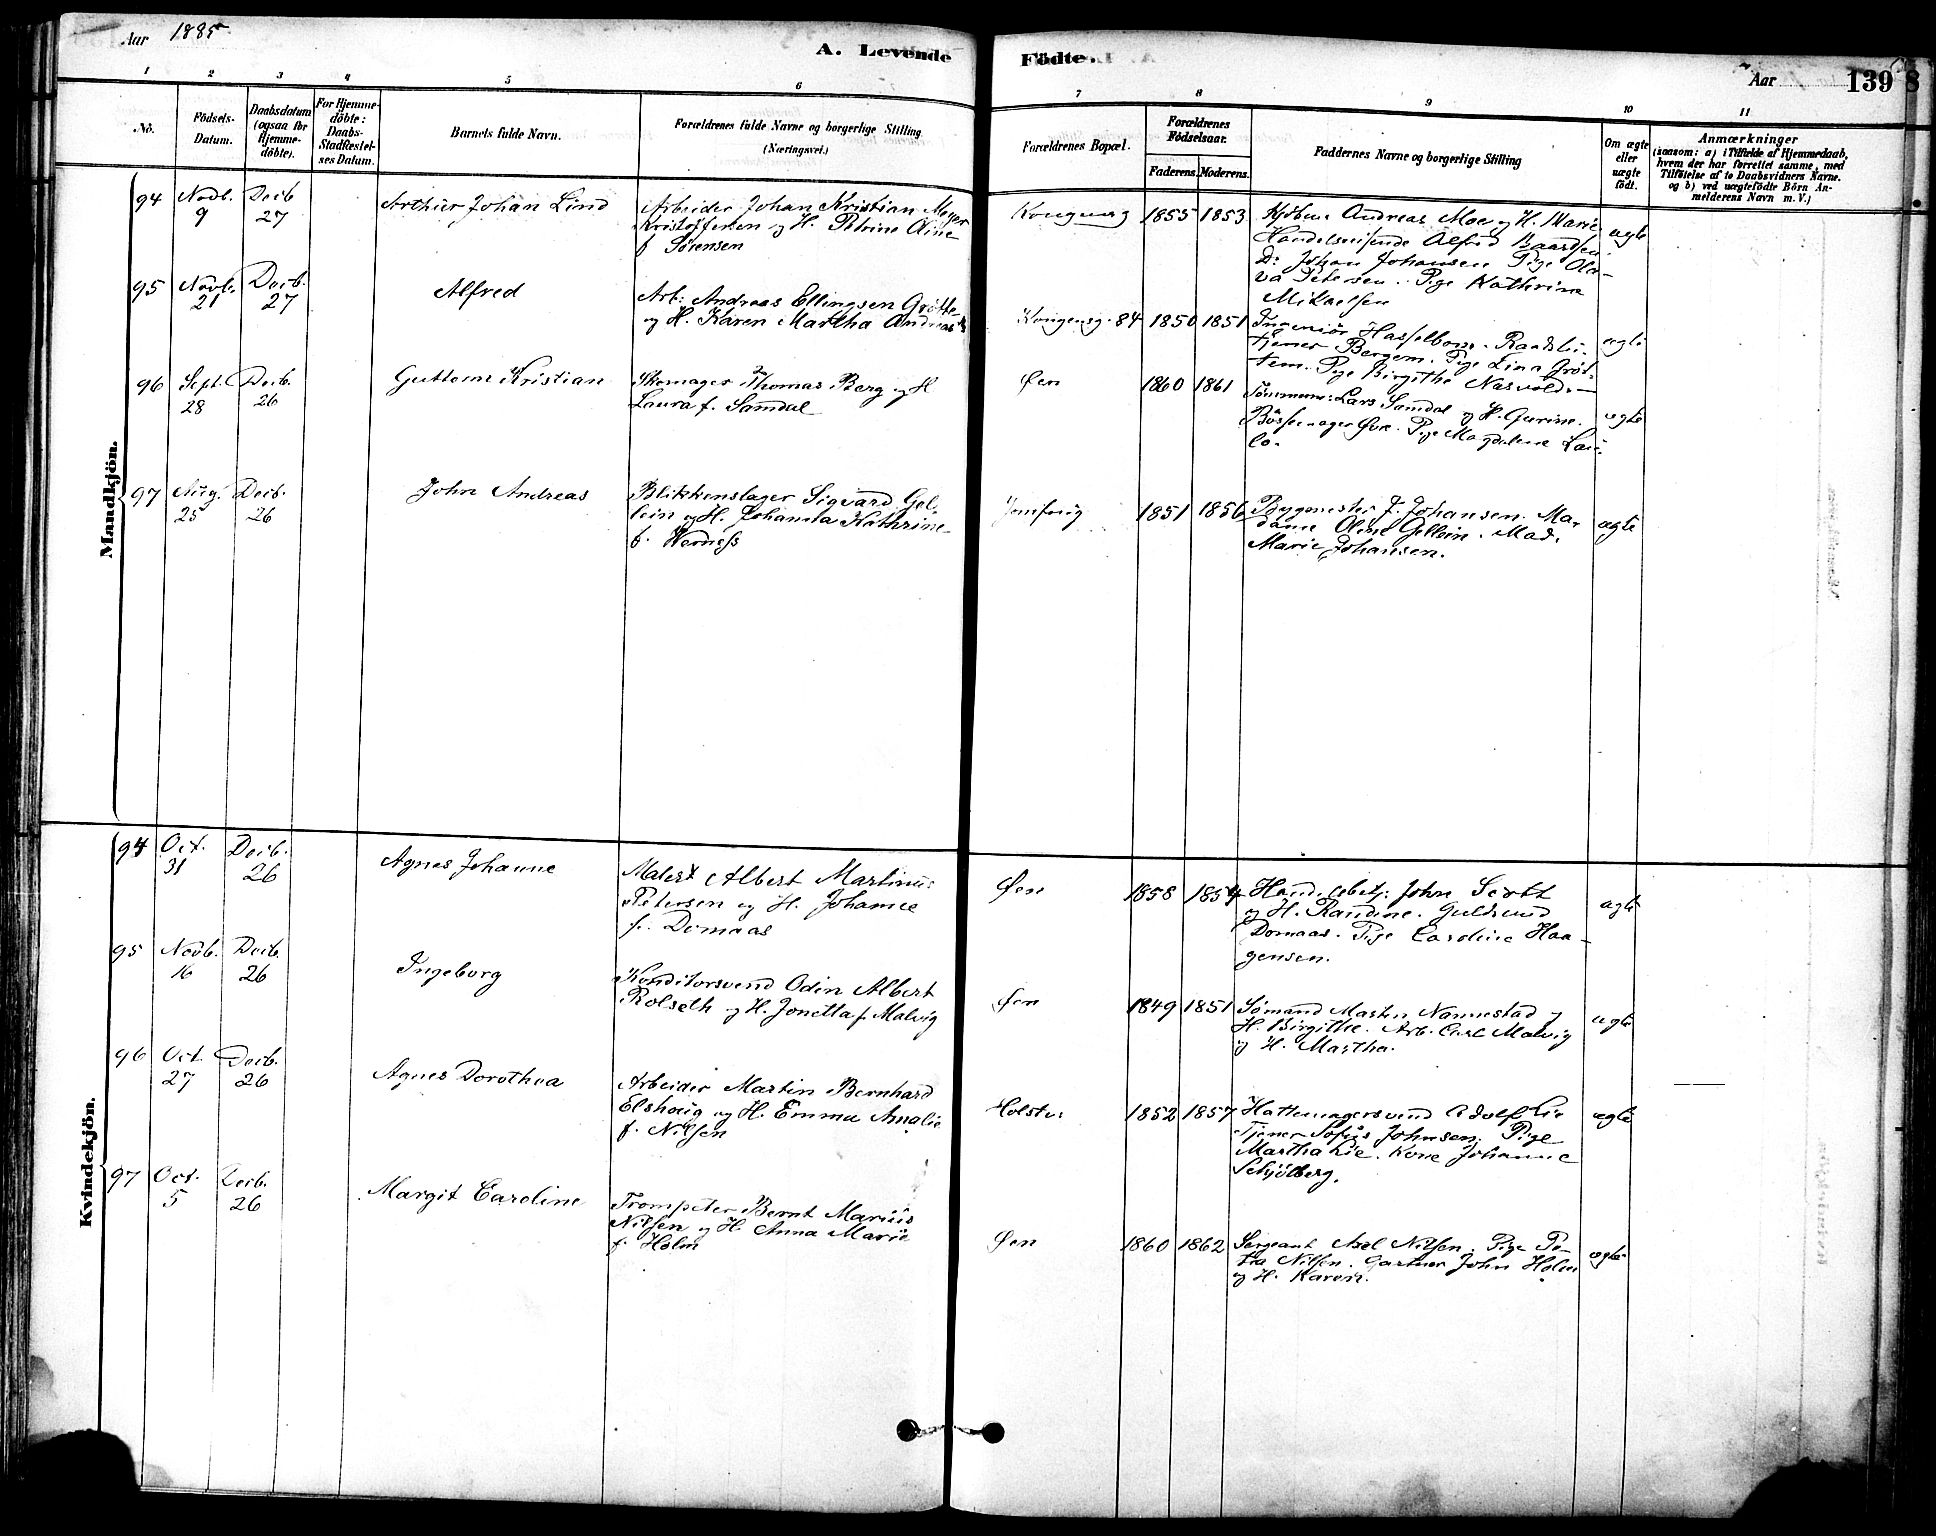 Aar 1885
A. Levende
Födte.
Aar
139
8
1
2
3
4
5
6
7
8
9
10
11
No.
Födsels-
Datum.
Daabsdatum
(ogsaa for
Hjemme-
döbte).
For Hjemme-
döbte:
Daabs-
Stadfæstel-
ses Datum.
Barnets fulde Navn.
Forældrenes fulde Navne og borgerlige Stilling
(Næringsvei.)
Forældrenes Bopæl.
Forældrenes
Födselsaar.
Faderens. Moderens.
Faddernes Navne og borgerlige Stilling
Om ægte
eller
uægte
födt.
Anmærkninger
(saasom: a) i Tilfælde af Hjemmedaab,
hvem der har forrettet samme, med
Tilföielse af to Daabsvidners Navne.
og b) ved uægtefödte Börn An-
melderens Navn m. V.)
Mandkjön.
94
Novb.
9
Decb
27
Arthur Johan Lind
Arbeider Johan Kristian Meyer
Kristoffersen og H. Petrine Oline
f. Sørensen
1855 1853
Kjöbm: Andreas Moe og H. Marie
Handelsreisende Alfred Baardsen
Do Johan Johansen Pige Ole-
va Petersen. Pige Kathrine
Mikaelsen
ægte
95
Novb.
21
Decb.
27
Alfred
Arb: Andreas Ellingsen Grötte
og H. Karen Martha Andreas
Kongensg. 84 1850 1851
Ingeniör Hasselbom. Raadstu-
tjener Bergem. Pige Lina Gröt-
tem. Pige Birgithe Nasvold.
ægte
96
Sept.
28
Decb.
26
Guttorm Kristian
Skomager Thomas Berg og H
Laura f. Samdal
Øen
1860 1861
Tömmerm: Lars Samdal og H. Gurine.
Bössemager Øvre. Pige Magdalena
ægte
97
Aug.
25
Decb.
26
John Andreas
Blikkenslager Sigvard Gel-
lein og H. Johanna Kathrine
f. Werness
1851 1856
Bygmester J. Johansen. Ma-
dame Oline Gellein. Mad.
Marie Johansen.
ægte
Kvindekjön.
94
Oct.
31
Decb.
26
Agnes Johanne
Malers. Albert Martinus
Petersen og H. Johanna
f. Domaas
Øen
1858 1854
Handelsbetj: John
og H. Randine. Guldsmed
Domaas. Pige Caroline Haa-
gensen.
ægte
95
Novb.
16
Decb.
26
Ingeborg
Konditorsvend Odin Albert
Rolseth og H. Jonetta f. Malvig
Øen
1849 1851
Sømand Morten Nannestad og
H. Birgithe. Arb. Carl Malvig
og H. Martha.
ægte
96
Oct.
27
Decb.
26
Agnes Dorothea
Arbeider Martin Bernhard
Elshaug og H. Emma Amalie
f. Nilsen
Holster
1852 1857
Hattemagersvend Adolf Lie
Tjener Sofus Johnsen. Pige
Martha Lie. Kone Johanne
Schjölberg.
ægte
97
Oct.
5
Decb.
26
Margit Caroline
Trompeter Bernt Marius
Nilsen og H. Anna Marie
f. Holm
Øen
1860 1862
Sergeant Axel Nilsen. Pige Pe-
tra Nilsen. Gartner John Holm
og H. Karen.
ægte